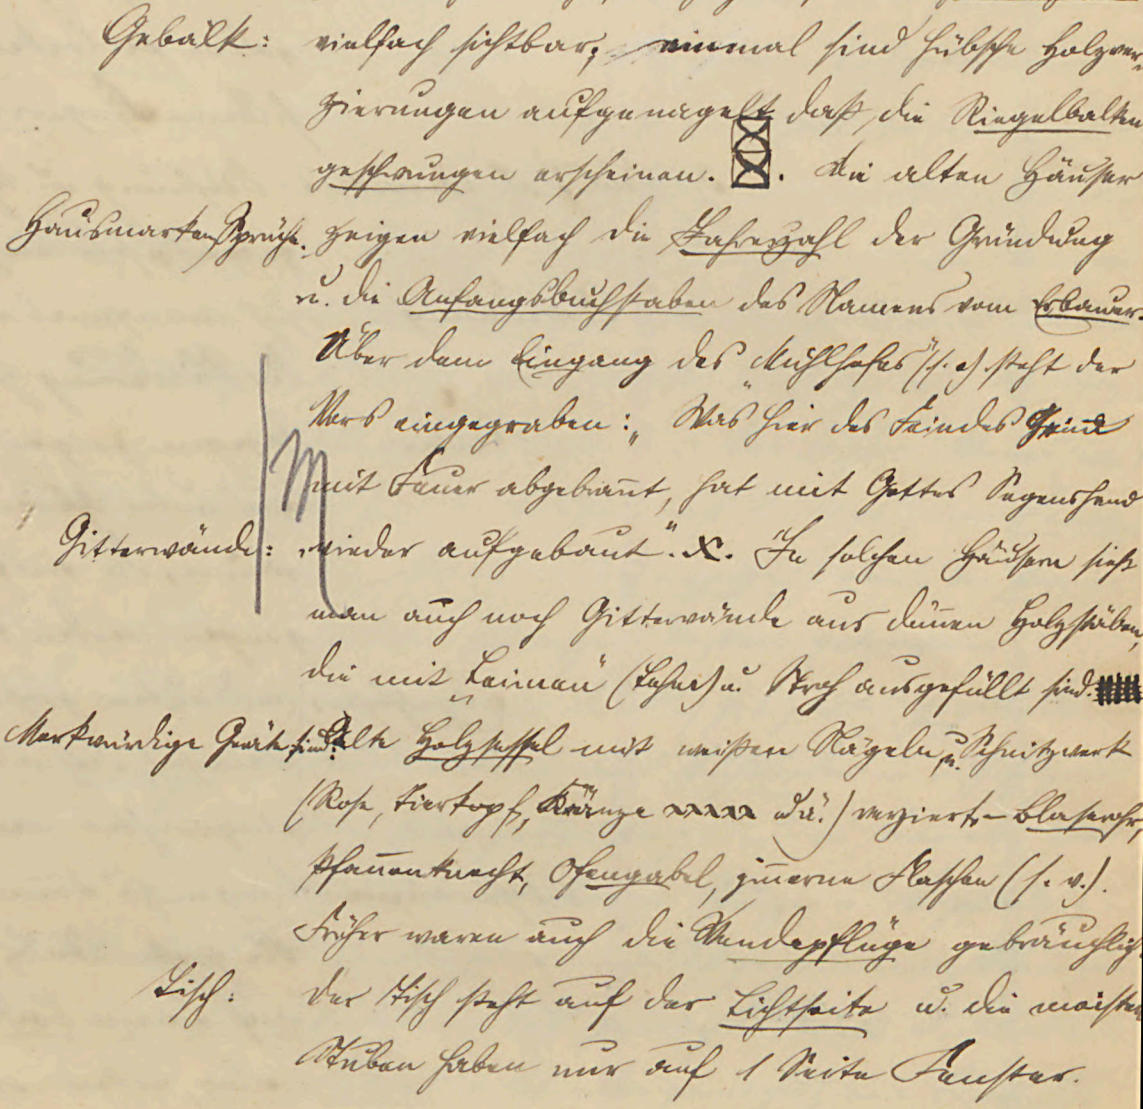 Gebälk: vielfach sichtbar; einmal sind hübsche Holzver-
zierungen aufgenagelt, daß die Riegelbalken
geschwungen erscheinen. Die alten Häuser
Hausmarken, Sprüche: zeigen vielfach die Jahreszahl der Gründung
u. die Anfangsbuchstaben des Namens vom Erbauer.
Über dem Eingang des Mühlhofes (s. a) steht der
Vers eingegraben: „Was hier des Feindes Grimm
mit Feuer abgebrannt, hat mit Gottes Segenshand
Gitterwände: wieder aufgebaut". X. In solchen Häusern sieht
man auch noch Gitterwände aus dünnen Holzstäben,
die mit „Leimen" (Lehm) u. Stroh ausgefüllt sind.
Merkwürdige Geräte sind: Alte Holzsessel mit weißen Nägeln u. Schnitzwerk
(Rose, Tierkopf, Kränze u ä.) verziert, – Blaserohr,
Pfannenknecht, Ofengabel, zinnerne Flaschen (s. v.).
Früher waren auch die Wendepflüge gebräuchlich.
Tisch: Der Tisch steht auf der Lichtseite u. die meisten
Stuben haben nur auf 1 Seite Fenster.